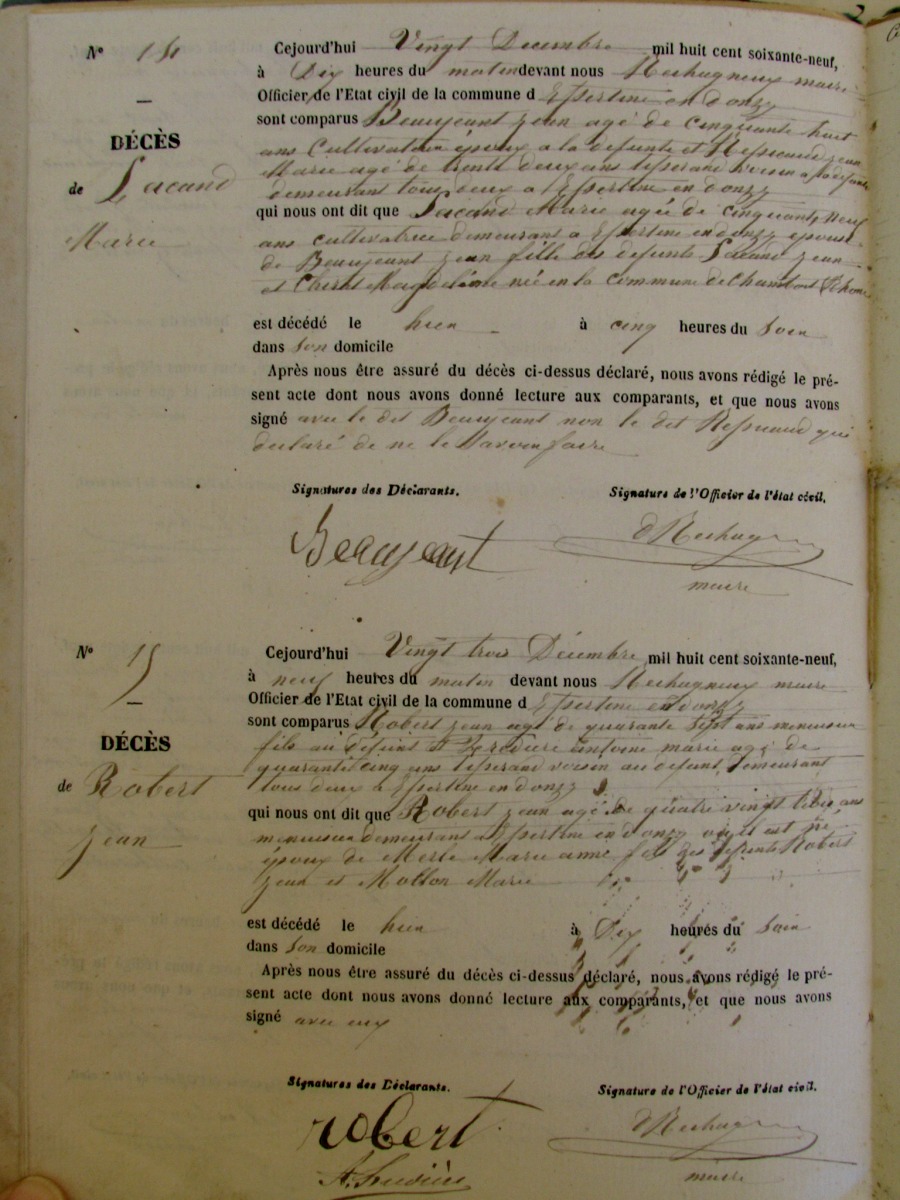 N° 14
DÉCÈS
de Lacand
Marie
Cejourd'hui Vingt Decembre mil huit cent soixante-neuf,
à Dix heures du matin devant nous maire
Officier de l'Etat civil de la commune d Essertine en donzy
sont comparus Beaujeant jean agé de cinquante huit
ans Cultivateur époux a la defunte et jean
Marie agé de trente deux ans tisserand voisin a la defunte
demeurant tous deux a Essertine en donzy
qui nous ont dit que Lacand Marie agée de cinquante neuf
ans cultivatrice demeurant a Essertine en donzy epouse
de Beaujeant jean fille des defunts Lacand jean
et Magdeleine née en la commune de Rhone
est décédé le hier à cinq heures du Soir
dans Son domicile
Après nous être assuré du décès ci-dessus déclaré, nous avons rédigé le pré-
sent acte dont nous avons donné lecture aux comparants, et que nous avons
signé avec le dit Beaujeant non le dit qui
declaré de ne le Savoir faire
Signatures des Déclarants.
Signature de l'Officier de l'état civil.
Beaujeant
maire
N° 15
DÉCÈS
de Robert
jean
Cejourd'hui Vingt trois Décembre mil huit cent soixante-neuf,
à neuf heures du matin devant nous maire
Officier de l'Etat civil de la commune d Essertine en donzy
sont comparus Robert jean agé de quarante Sept ans menusier
fils au défunt et antoine marie agé de
quarante cinq ans tisserand voisin au defunt, demeurant
tous deux a Essertine en donzy
qui nous ont dit que Robert jean agé de quatre vingt trois ans
menusier demeurant a Essertine en donzy ou il est né
époux de Merle Marie anne fils des defunts Robert
jean et Mollon Marie
est décédé le hier à Dix heures du Soir
dans Son domicile
Après nous être assuré du décès ci-dessus déclaré, nous avons rédigé le pré-
sent acte dont nous avons donné lecture aux comparants, et que nous avons
signé avec eux
Signatures des Déclarants.
Signature de l'Officier de l'état civil.
robert
maire